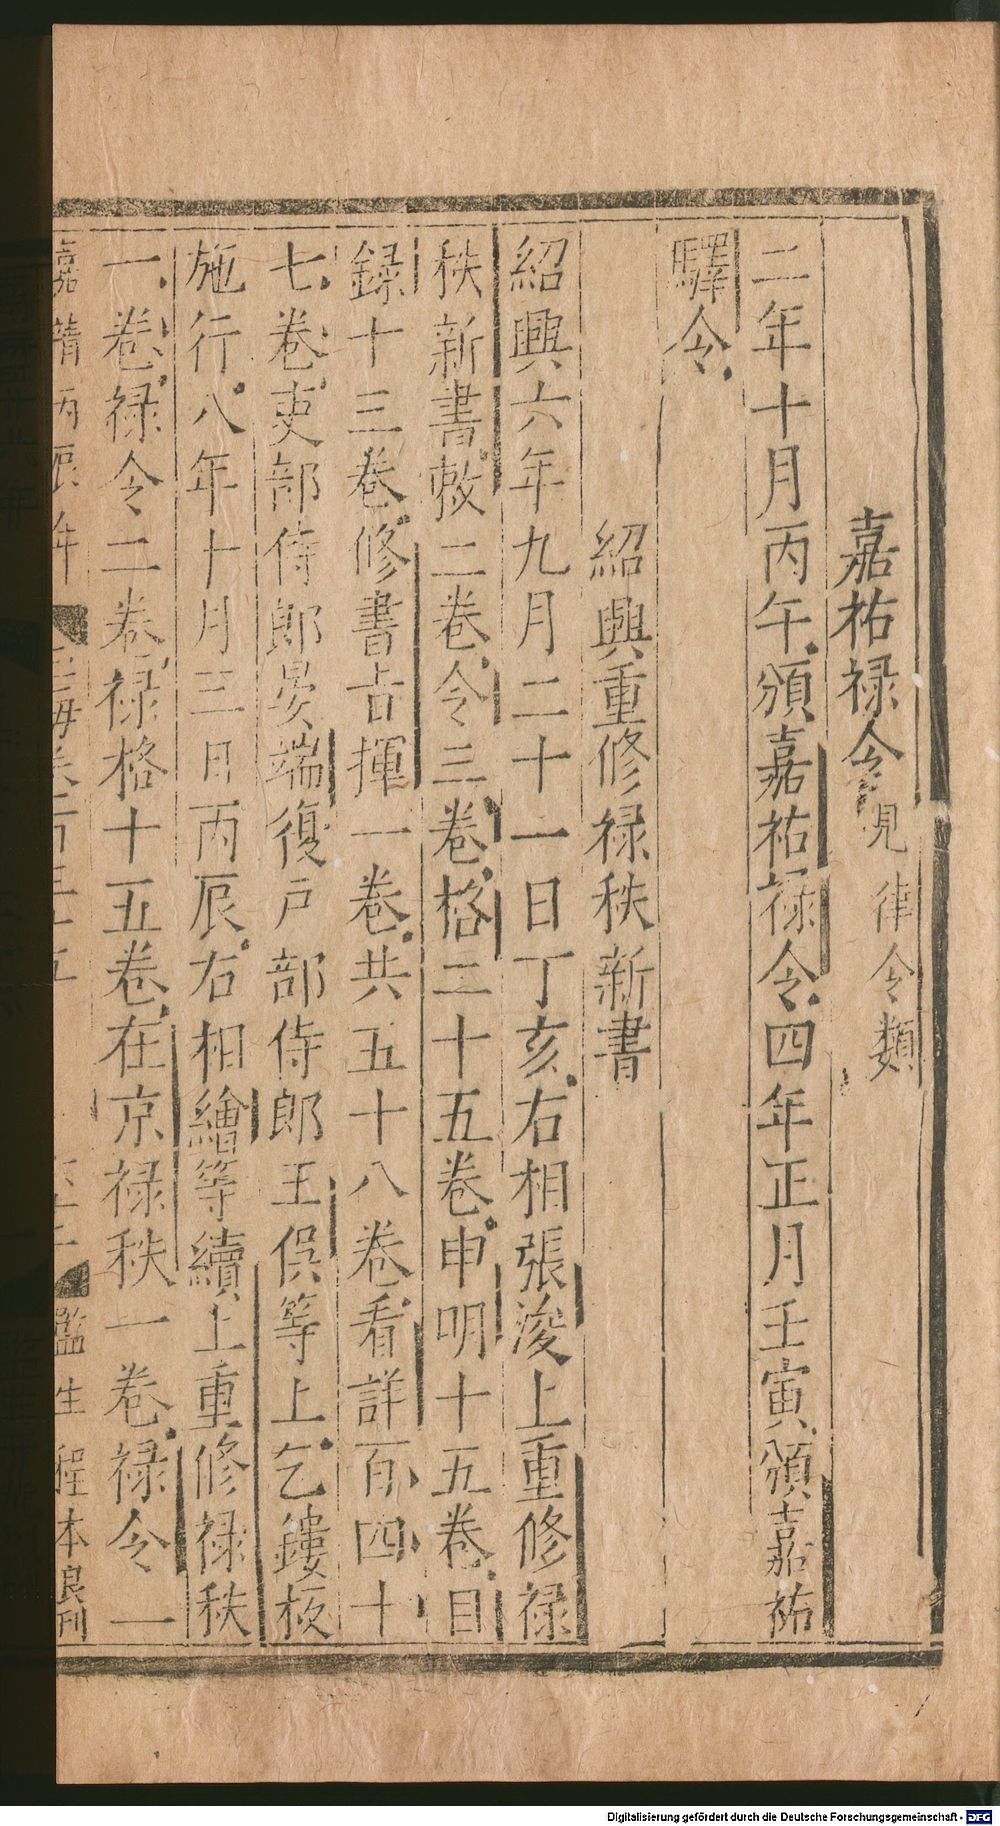 嘉祐禄令見律令類
二年十月丙午頒嘉祐禄令四年正月壬寅頒嘉祐
驛令
紹興重修禄秩新書
紹興六年九月二十一日丁亥右相張浚上重修禄
秩新書敕二卷令三卷格二十五卷申明十五卷目
録十三卷修書吉揮一卷共五十八卷看詳百四十
七卷吏部侍郎晏端復戶部侍郎王俁等上乞鏤板
施行八年十月三日丙辰右相繪等續上重修禄秩
一卷禄令二卷禄格十五卷在京禄秩一卷禄令一
嘉靖丙辰年 玉海卷一百三十五 監生程本良刊
Digitalisierung gefördert durch die Deutsche Forschungsgemeinschaft - DFG